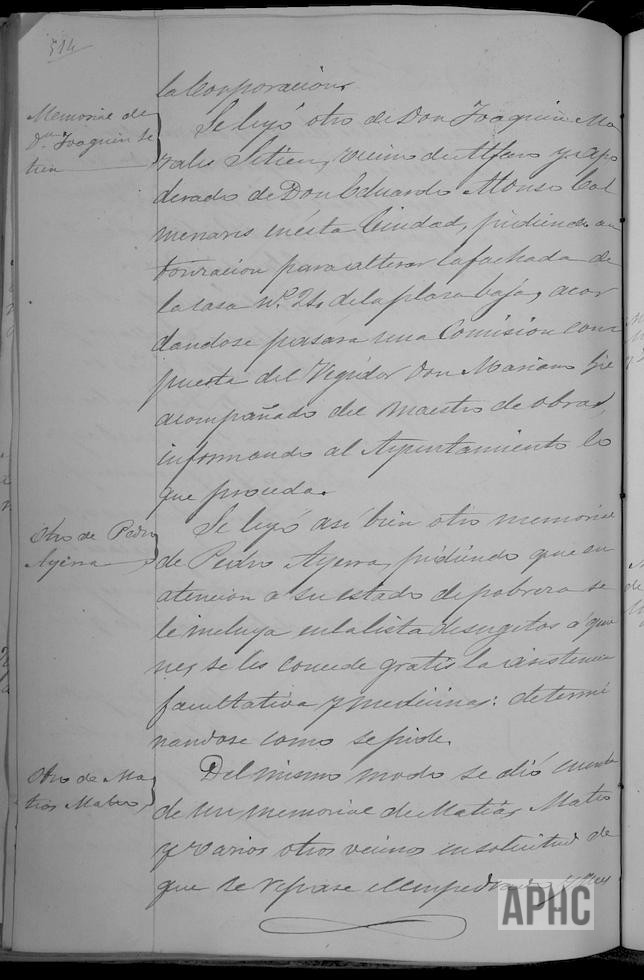 514
la Corporacion.
Memorial de
Dn. Joaquin Se
tien
Se leyó otro de Don Joaquin Mo
rales Setien, vecino de Alfaro y apo
derado de Don Eduardo Alonso Col
menares en ésta Ciudad, pidiendo au
torizacion para alterar la fachada de
la casa nº. 24 de la plaza baja, acor
dandose pasara una Comision com
puesta del Regidor Don Mariano
acompañado del Maestro de obras,
informando al Ayuntamiento lo
que proceda.
Otro de Pedro
Ayerra
Se leyó así bien otro memorial
de Pedro Ayerra, pidiendo que en
atencion a su estado de pobreza se
le incluya en la lista de sugetos á quie
nes se les concede gratis la asistencia
facultativa y medicinas: determi
nandose como se pide.
Otro de Ma
tias Mateo
Del mismo modo se dió cuenta
de un memorial de Matias Mateo
y varios otros vecinos en solicitud de
que se repase el empedrado y
APHC